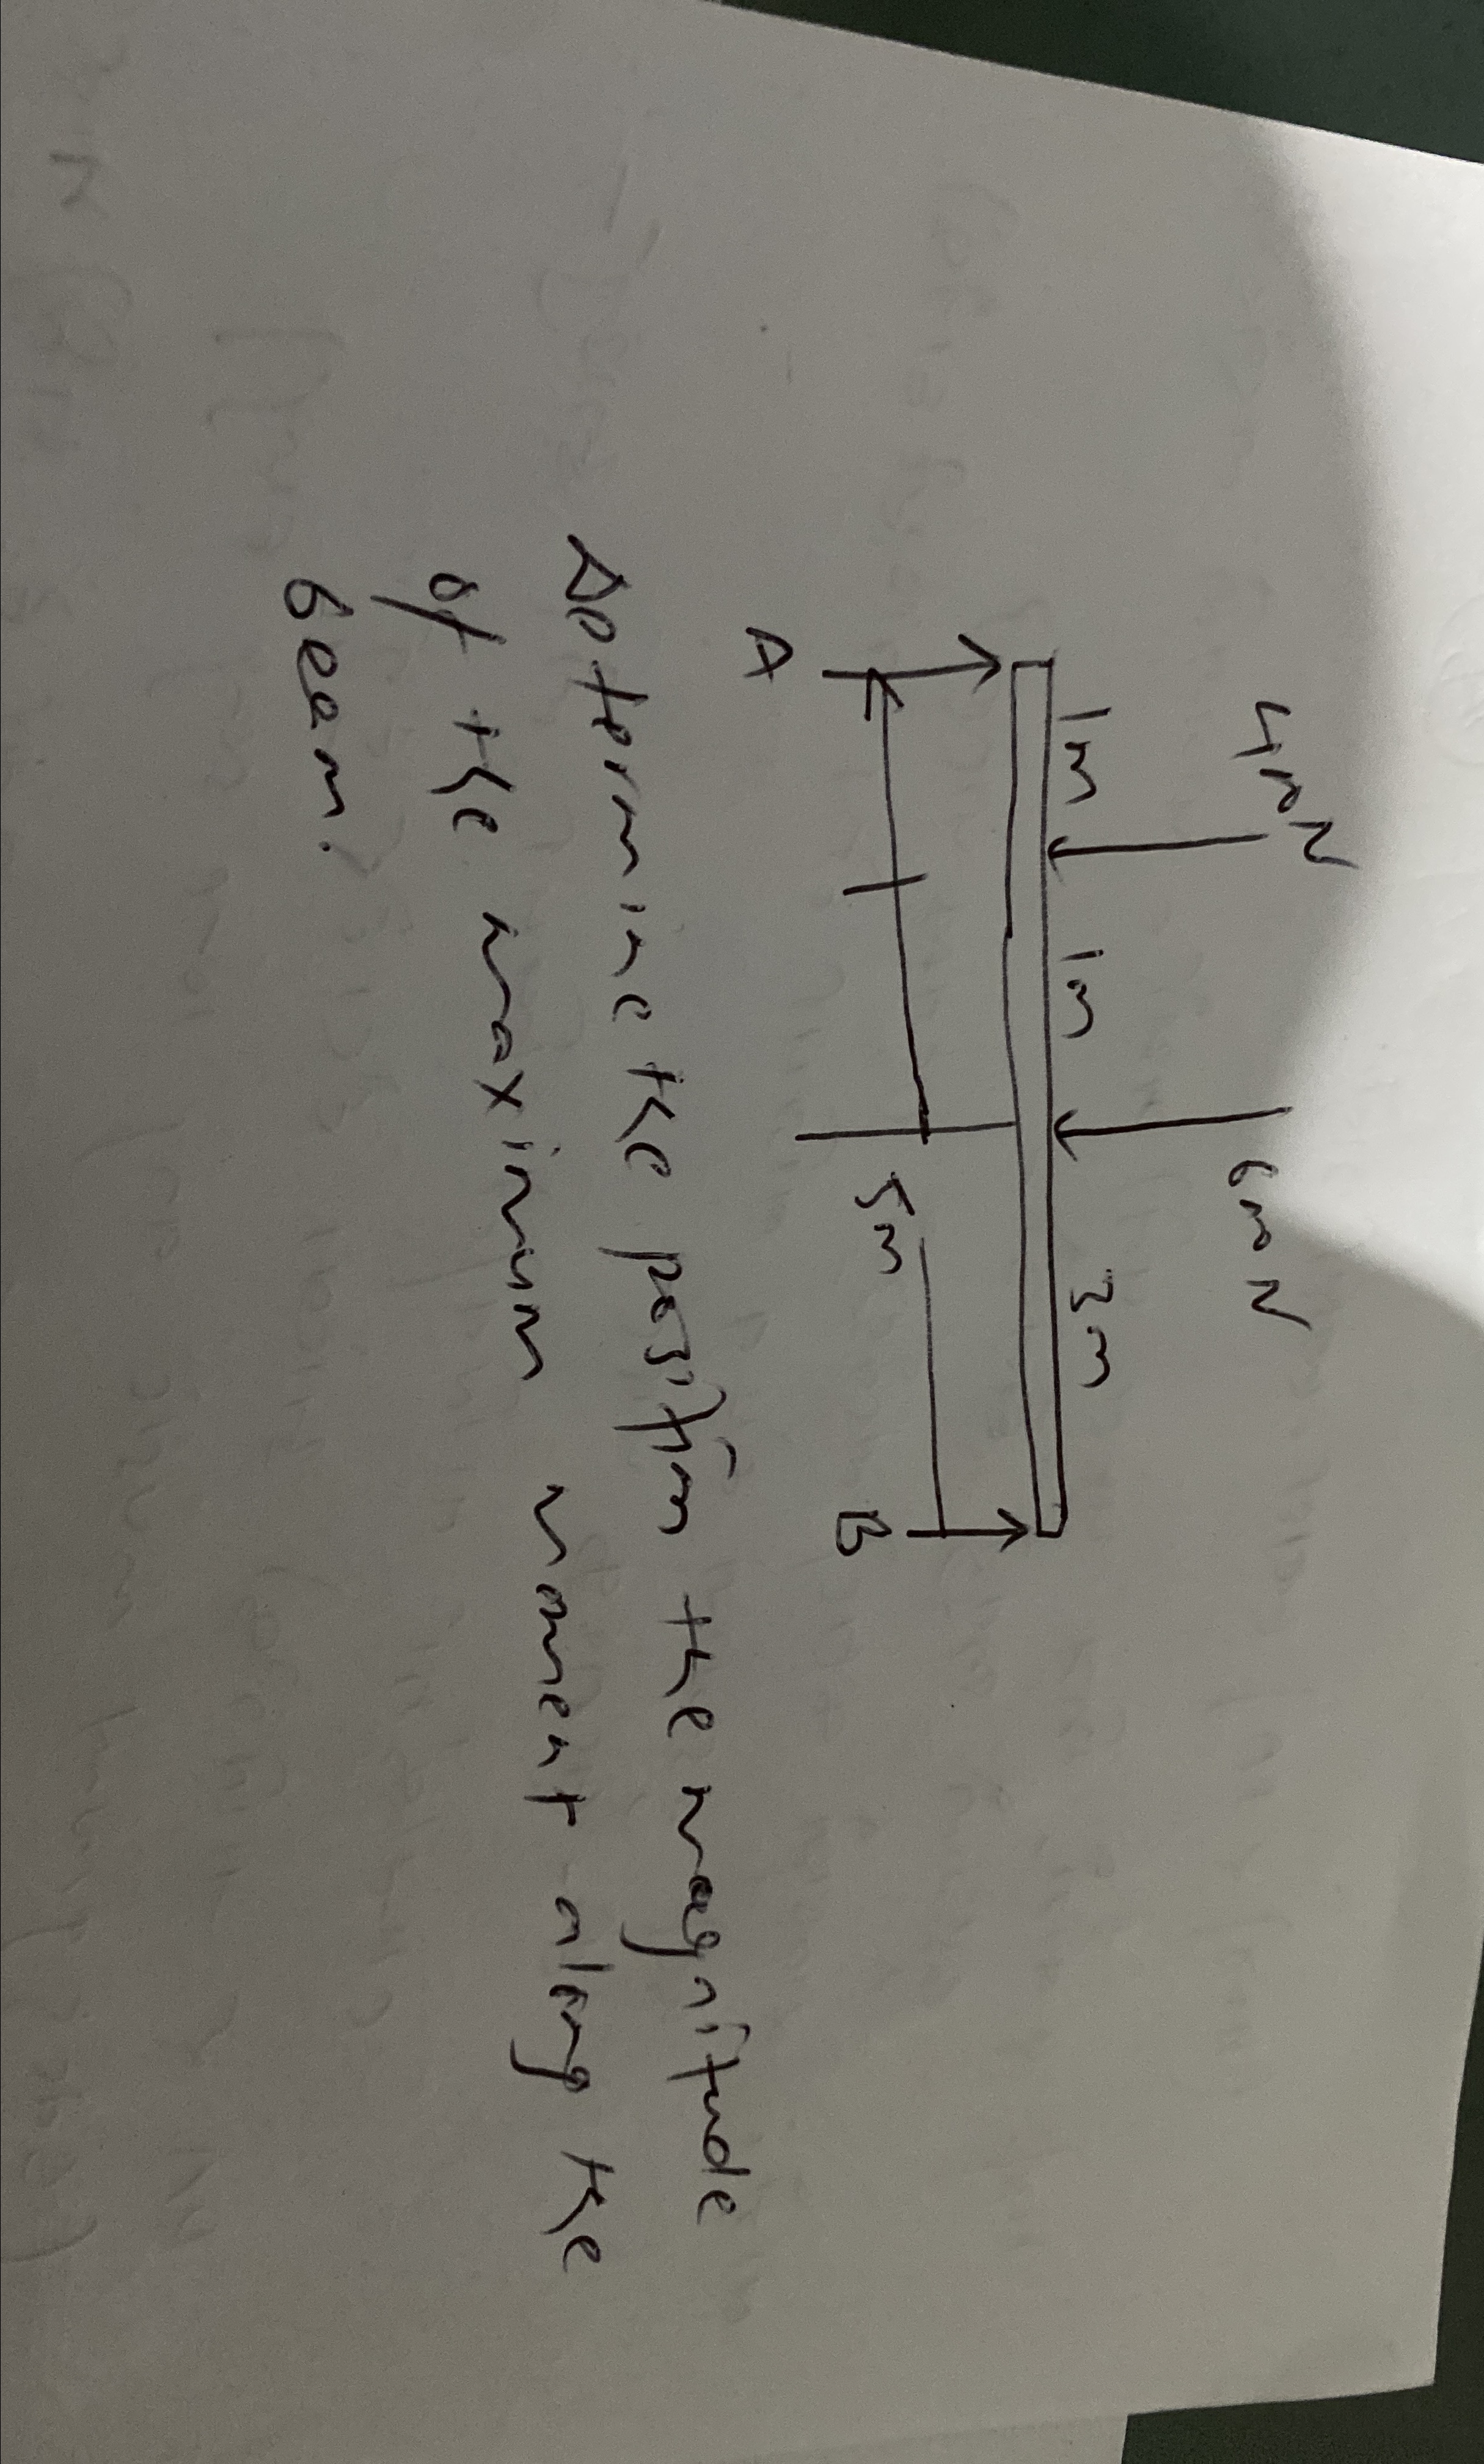 400N
600N
1m 1m 3m
5m
A
B
Determine the position the magnitude
of the maximum moment along the
beam.